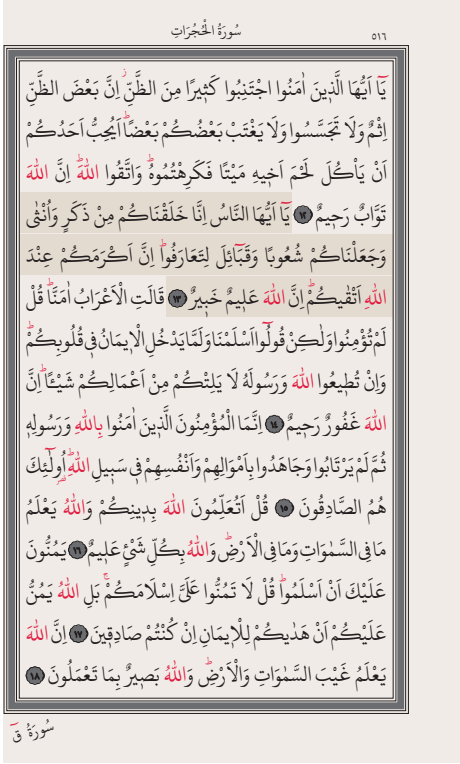 سُورَةُ الْحُجُرَاتِ
٥١٦
يَٓا اَيُّهَا الَّذ۪ينَ اٰمَنُوا اجْتَنِبُوا كَث۪يرًا مِنَ الظَّنِّۘ اِنَّ بَعْضَ الظَّنِّ
اِثْمٌ وَلَا تَجَسَّسُوا وَلَا يَغْتَبْ بَعْضُكُمْ بَعْضًاۜ اَيُحِبُّ اَحَدُكُمْ
اَنْ يَأْكُلَ لَحْمَ اَخ۪يهِ مَيْتًا فَكَرِهْتُمُوهُۜ وَاتَّقُوا اللّٰهَۜ اِنَّ اللّٰهَ
تَوَّابٌ رَح۪يمٌ ﴿١٢﴾ يَٓا اَيُّهَا النَّاسُ اِنَّا خَلَقْنَاكُمْ مِنْ ذَكَرٍ وَاُنْثٰى
وَجَعَلْنَاكُمْ شُعُوبًا وَقَبَٓائِلَ لِتَعَارَفُواۜ اِنَّ اَكْرَمَكُمْ عِنْدَ
اللّٰهِ اَتْقٰيكُمْۜ اِنَّ اللّٰهَ عَل۪يمٌ خَب۪يرٌ ﴿١٣﴾ قَالَتِ الْاَعْرَابُ اٰمَنَّاۜ قُلْ
لَمْ تُؤْمِنُوا وَلٰكِنْ قُولُٓوا اَسْلَمْنَا وَلَمَّا يَدْخُلِ الْا۪يمَانُ ف۪ي قُلُوبِكُمْۜ
وَاِنْ تُط۪يعُوا اللّٰهَ وَرَسُولَهُ لَا يَلِتْكُمْ مِنْ اَعْمَالِكُمْ شَيْـًٔاۜ اِنَّ
اللّٰهَ غَفُورٌ رَح۪يمٌ ﴿١٤﴾ اِنَّمَا الْمُؤْمِنُونَ الَّذ۪ينَ اٰمَنُوا بِاللّٰهِ وَرَسُولِه۪
ثُمَّ لَمْ يَرْتَابُوا وَجَاهَدُوا بِاَمْوَالِهِمْ وَاَنْفُسِهِمْ ف۪ي سَب۪يلِ اللّٰهِۜ اُو۬لٰٓئِكَ
هُمُ الصَّادِقُونَ ﴿١٥﴾ قُلْ اَتُعَلِّمُونَ اللّٰهَ بِد۪ينِكُمْ وَاللّٰهُ يَعْلَمُ
مَا فِي السَّمٰوَاتِ وَمَا فِي الْاَرْضِۜ وَاللّٰهُ بِكُلِّ شَيْءٍ عَل۪يمٌ ﴿١٦﴾ يَمُنُّونَ
عَلَيْكَ اَنْ اَسْلَمُواۜ قُلْ لَا تَمُنُّوا عَلَيَّ اِسْلَامَكُمْۚ بَلِ اللّٰهُ يَمُنُّ
عَلَيْكُمْ اَنْ هَدٰيكُمْ لِلْا۪يمَانِ اِنْ كُنْتُمْ صَادِق۪ينَ ﴿١٧﴾ اِنَّ اللّٰهَ
يَعْلَمُ غَيْبَ السَّمٰوَاتِ وَالْاَرْضِۜ وَاللّٰهُ بَص۪يرٌ بِمَا تَعْمَلُونَ ﴿١٨﴾
سُورَةُ قٓ